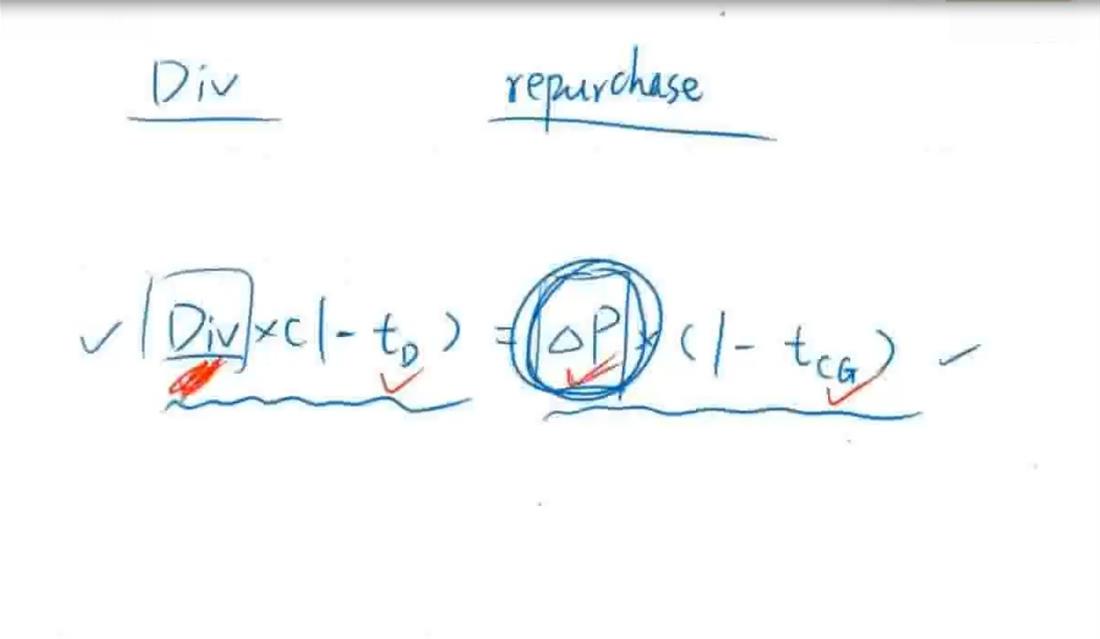 Div repurchase
Div × (1 - t_D) = △P × (1 - t_CG)